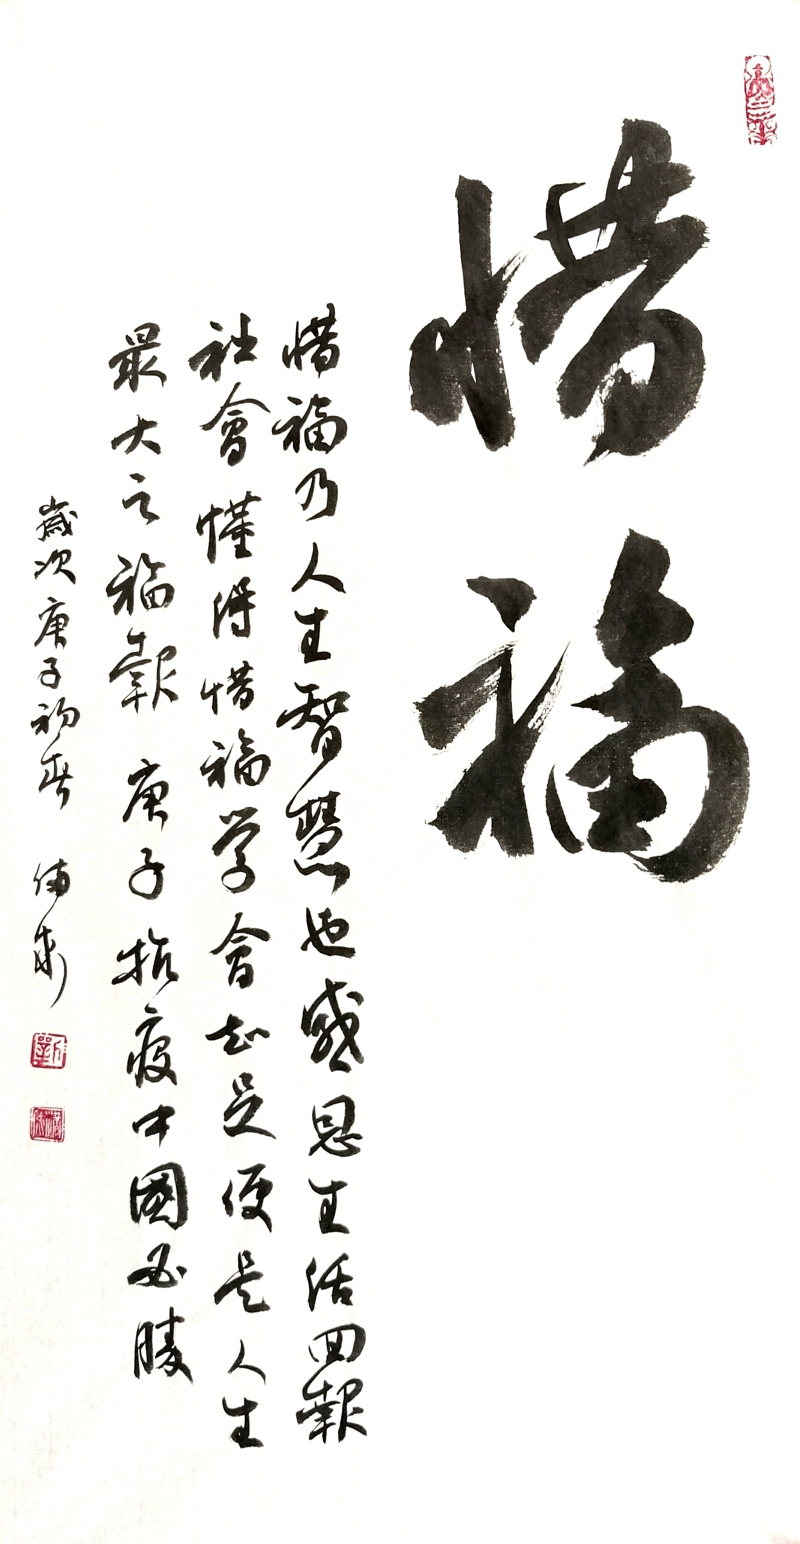 惜福
惜福乃人生智慧也感恩生活回報
社會懂得惜福学會知足便是人生
最大之福報 庚子抗疫中國必勝
歲次庚子初春
劉